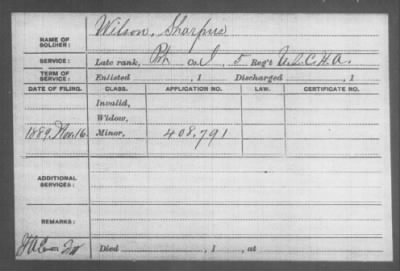 NAME OF SOLDIER: Wilson, Sharpus
SERVICE: Late rank, Pvt Co. I, 5 Reg't U.S.C.H.A.
TERM OF SERVICE: Enlisted , 1 Discharged , 1
DATE OF FILING. CLASS. APPLICATION NO. LAW. CERTIFICATE NO.
Invalid,
Widow,
1889, Nov. 16. Minor, 408.791
ADDITIONAL SERVICES:
REMARKS:
Died , 1 , at